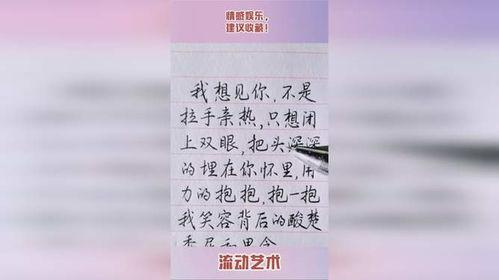 情感娱乐，
建议收藏！
我想见你，不是
拉手亲热，只想闭
上双眼，把头深深
的埋在你怀里，用
力的抱抱，抱一抱
我笑容背后的酸楚
流动艺术